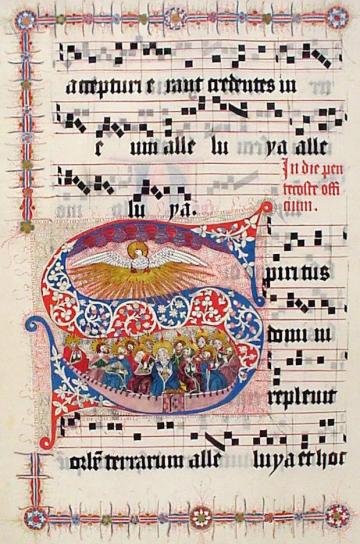 accepturi e rant credentes in
e um alle lu ya alle
In die pen
tecoste offi
cium.
lu ya.
Spiritus
domini
repleuit
orbē terrarum alle luya et hoc